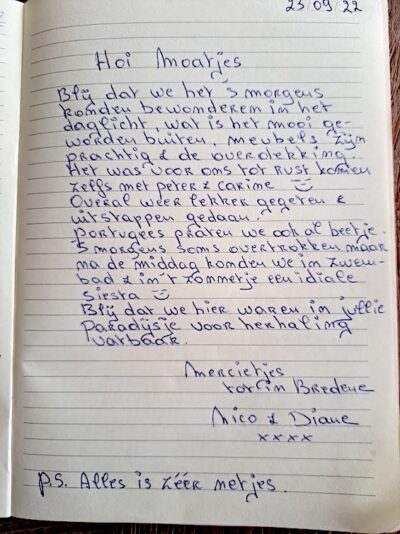 23/09/22
Hoi Moatjes
Blij dat we het 's morgens
konden bewonderen in het
daglicht, wat is het mooi ge-
worden buiten, meubels zijn
prachtig & de overdekking.
Het was voor ons tot rust komen
zelfs met peter & carine
Overal weer lekker gegeten &
uitstappen gedaan.
Portugees praten we ook al beetje.
's morgens soms overtrokken maar
na de middag konden we in zwem-
bad & in 't zonnetje een idiale
siesta
Blij dat we hier waren in jullie
Paradijsje voor herhaling
vatbaar.
Mercietjes
tot in Bredene
Nico & Diane
xxxx
P.S. Alles is zéér netjes.